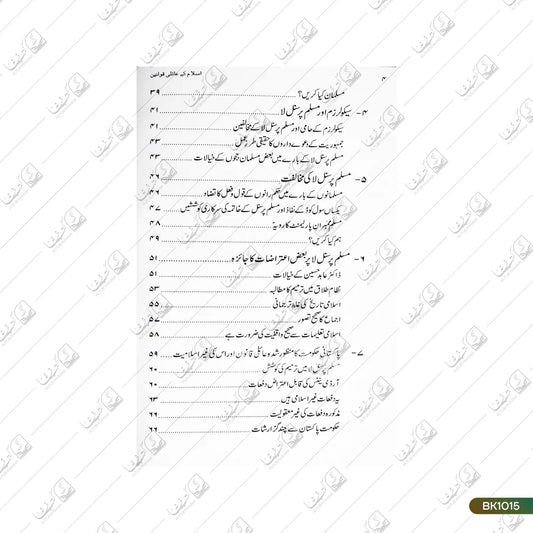 ۴ اسلام کے عائلی قوانین
مسلمان کیا کریں؟ ۳۹
۴- سیکولرزم اور مسلم پرسنل لا ۴۱
سیکولرزم کے حامی اور مسلم پرسنل لا کے مخالفین ۴۱
جمہوریت کے دعوے داروں کا حقیقی طرز عمل ۴۳
مسلم پرسنل لا کے بارے میں بعض مسلمان ججوں کے خیالات ۴۳
۵- مسلم پرسنل لا کی مخالفت ۴۶
مسلمانوں کے بارے میں حکم رانوں کے قول و فعل کا تضاد ۴۶
یکساں سول کوڈ کے نفاذ اور مسلم پرسنل کے خاتمہ کی سرکاری کوششیں ۴۷
مسلم ممبران پارلیمنٹ کا رویہ ۴۸
ہم کیا کریں؟ ۴۹
۶- مسلم پرسنل لا پر بعض اعتراضات کا جائزہ ۵۱
ڈاکٹر عابد حسین کے خیالات ۵۱
نظام طلاق میں ترمیم کا مطالبہ ۵۳
اسلامی تاریخ کی غلط ترجمانی ۵۵
اجماع کا صحیح تصور ۵۷
اسلامی تعلیمات سے صحیح واقفیت کی ضرورت ہے ۵۸
۷- پاکستانی حکومت کا منظور شدہ عائلی قانون اور اس کی غیر اسلامیت ۵۹
مسلم پرسنل لا میں ترمیم کی کوشش ۶۰
آرڈی ننس کی قابل اعتراض دفعات ۶۰
یہ دفعات غیر اسلامی ہیں ۶۳
مذکورہ دفعات کی غیر معقولیت ۶۶
حکومت پاکستان سے چند گزارشات ۶۶
BK1015